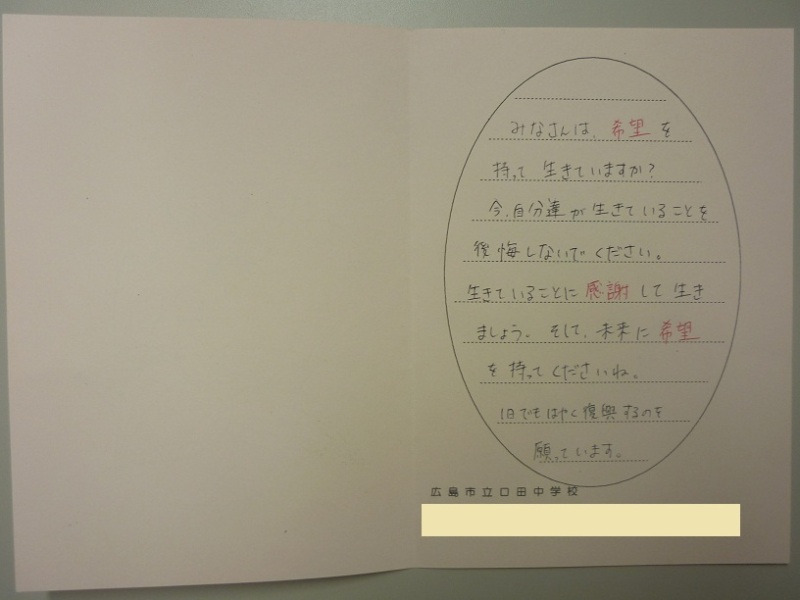 みなさんは、希望を
持って 生きていますか?
今、自分達が生きていることを
後悔しないでください。
生きていることに感謝して生き
ましょう。そして、未来に希望
を持ってくださいね。
1日でもはやく復興するのを
願っています。
広島市立口田中学校